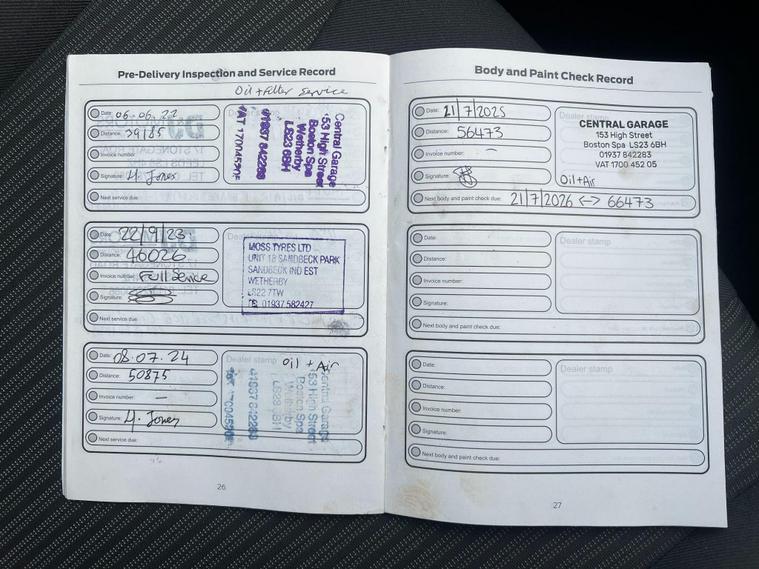 Pre-Delivery Inspection and Service Record
Oil + Filter Service
Date: 06.06.22
Distance:
Invoice number:
Signature: H. Jones
Next service due:
Central Garage
153 High Street
Boston Spa
Wetherby
LS23 6BH
01937 842283
Date: 22/9/23
Distance: 46026
Invoice number: Full Service
Signature:
Next service due:
MOSS TYRES LTD
UNIT 18 SANDBECK PARK
SANDBECK IND EST
WETHERBY
LS22 7TW
TEL 01937 582427
Date: 08.07.24
Distance: 50875
Invoice number: —
Signature: H. Jones
Next service due:
Dealer stamp
Oil + Air
Central Garage
153 High Street
Boston Spa
Wetherby
LS23 6BH
26
Body and Paint Check Record
Date: 21/7/2025
Distance: 56473
Invoice number: –
Signature:
Next body and paint check due: 21/7/2026 <-> 66473
Dealer stamp
CENTRAL GARAGE
153 High Street
Boston Spa LS23 6BH
01937 842283
VAT 1700 452 05
Oil + Air
Date:
Distance:
Invoice number:
Signature:
Next body and paint check due:
Dealer stamp
Date:
Distance:
Invoice number:
Signature:
Next body and paint check due:
Dealer stamp
27